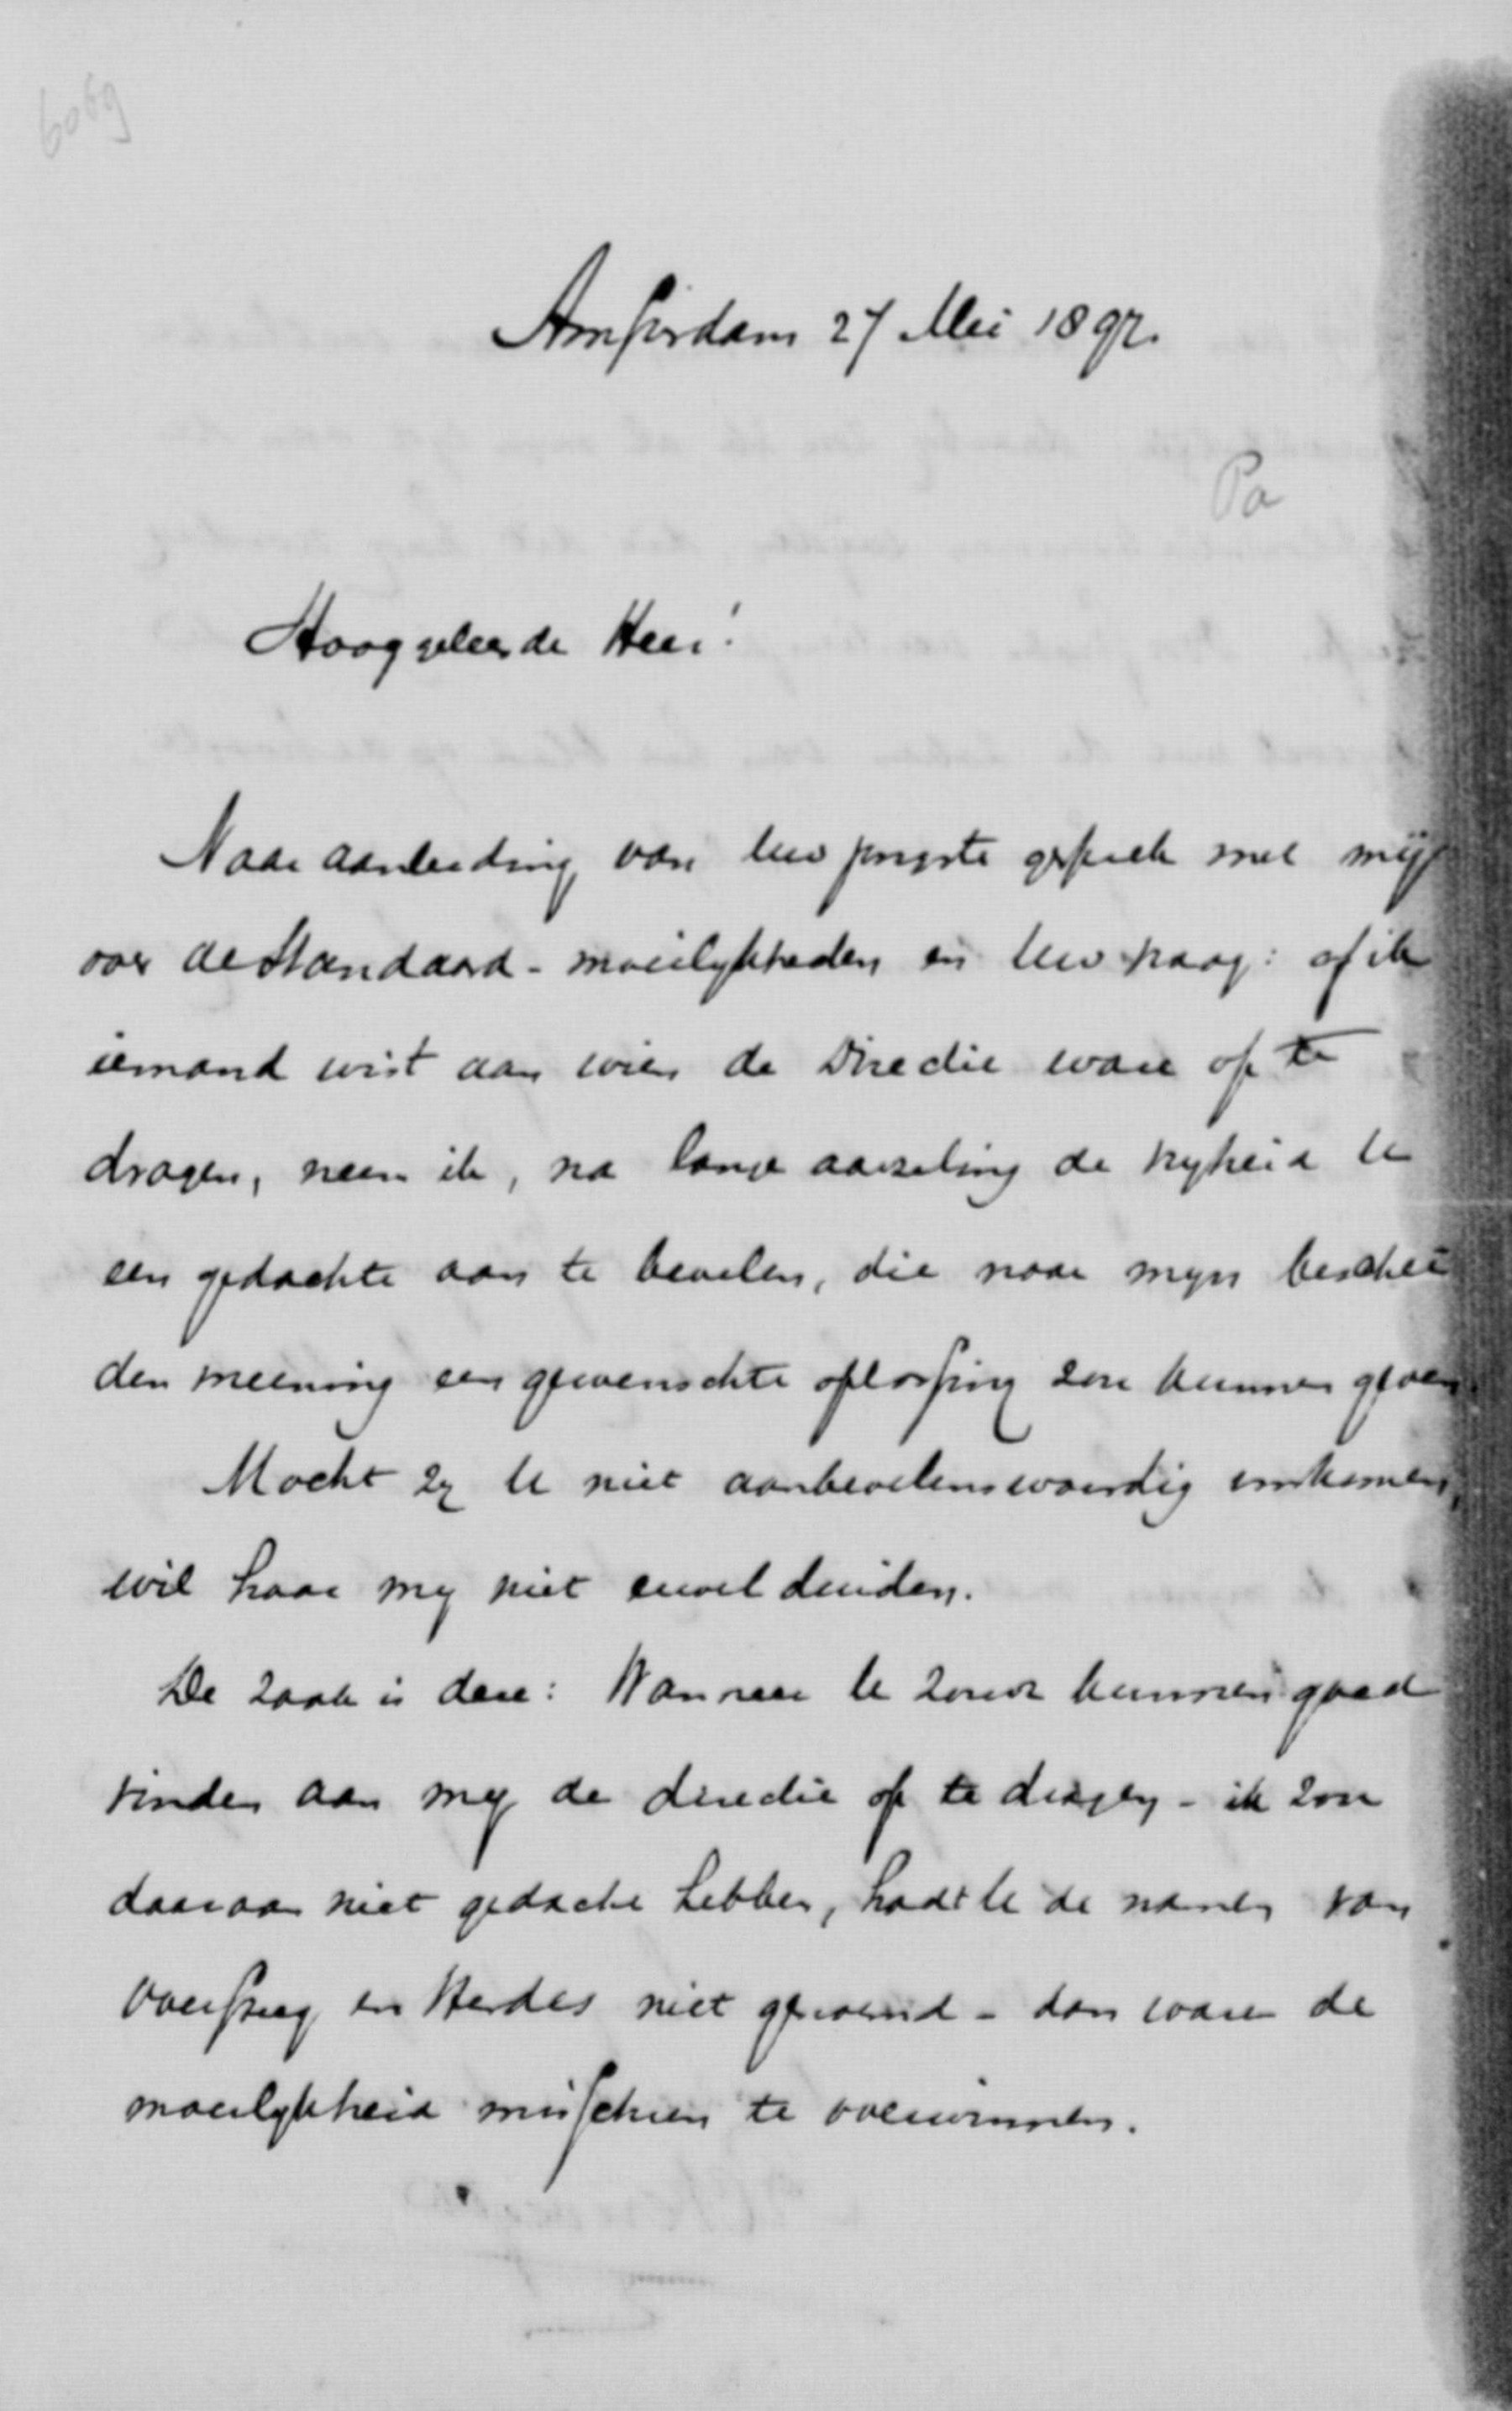 6069
Amsterdam 27 Mei 1897.
Pa
Hooggeleerde Heer!
Naar aanleiding van Uw jongste gesprek met mij
over de Standaard-moeilykheden en Uw vraag: of ik
iemand wist aan wien de Directie ware op te
dragen, neem ik, na lange aarzeling de vryheid U
een gedachte aan te bevelen, die naar myn beschei
den meening een gewenschte oplossing zou kunnen geven.
Mocht zy U niet aanbevelenswaardig voorkomen,
wil haar my niet euvel duiden.
De zaak is deze: Wanneer U zoudt kunnen goed
vinden aan my de directie op te dragen - ik zou
daaraan niet gedacht hebben, hadt U de namen van
en Herdes niet genoemd - dan ware de
moeilykheid misschien te overwinnen.